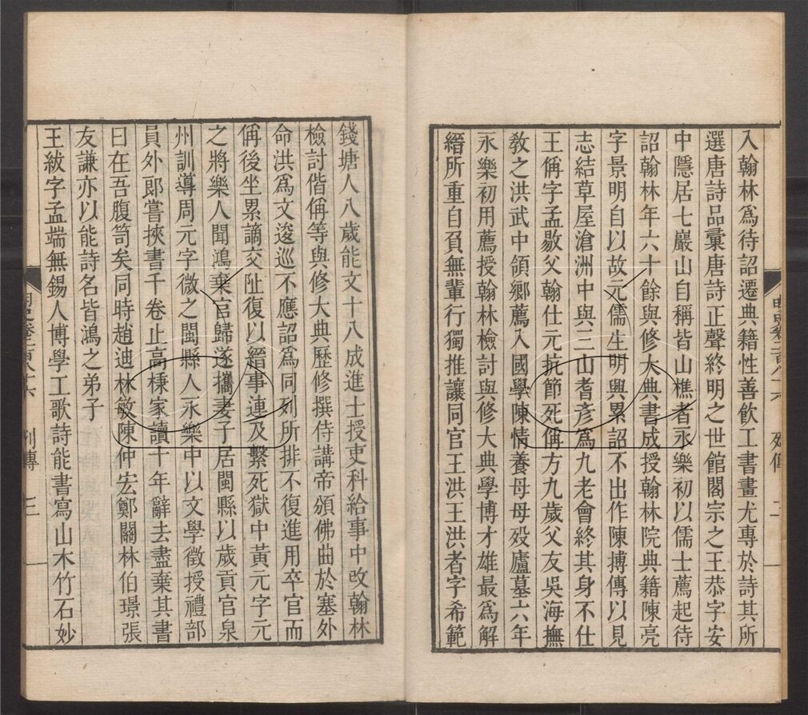 入翰林爲待詔遷典籍性善飲工書畫尤專於詩其所
選唐詩品彙唐詩正聲終明之世館閣宗之王恭字安
中隱居七巖山自稱皆山樵者永樂初以儒士薦起待
詔翰林年六十餘與修大典書成授翰林院典籍陳亮
字景明自以故元儒生明興累詔不出作陳摶傳以見
志結草屋滄洲中與三山耆彥爲九老會終其身不仕
王偁字孟敭父翰仕元抗節死偁方九歲父友吳海撫
敎之洪武中領鄕薦入國學陳情養母母歿廬墓六年
永樂初用薦授翰林檢討與修大典學博才雄最爲解
縉所重自負無輩行獨推讓同官王洪王洪者字希範
明史卷二百八十六 列傳 二
錢塘人八歲能文十八成進士授吏科給事中改翰林
檢討偕偁等與修大典歷修撰侍講帝頒佛曲於塞外
命洪爲文逡巡不應詔爲同列所排不復進用卒官而
偁後坐累謫交阯復以縉事連及繫死獄中黃元字元
之將樂人聞鴻棄官歸遂攜妻子居閩縣以歲貢官泉
州訓導周元字微之閩縣人永樂中以文學徵授禮部
員外郞嘗挾書千卷止高棅家讀十年辭去盡棄其書
曰在吾腹笥矣同時趙迪林敏陳仲宏鄭關林伯璟張
友謙亦以能詩名皆鴻之弟子
王紱字孟端無錫人博學工歌詩能書寫山木竹石妙
明史卷二百八十六 列傳 三